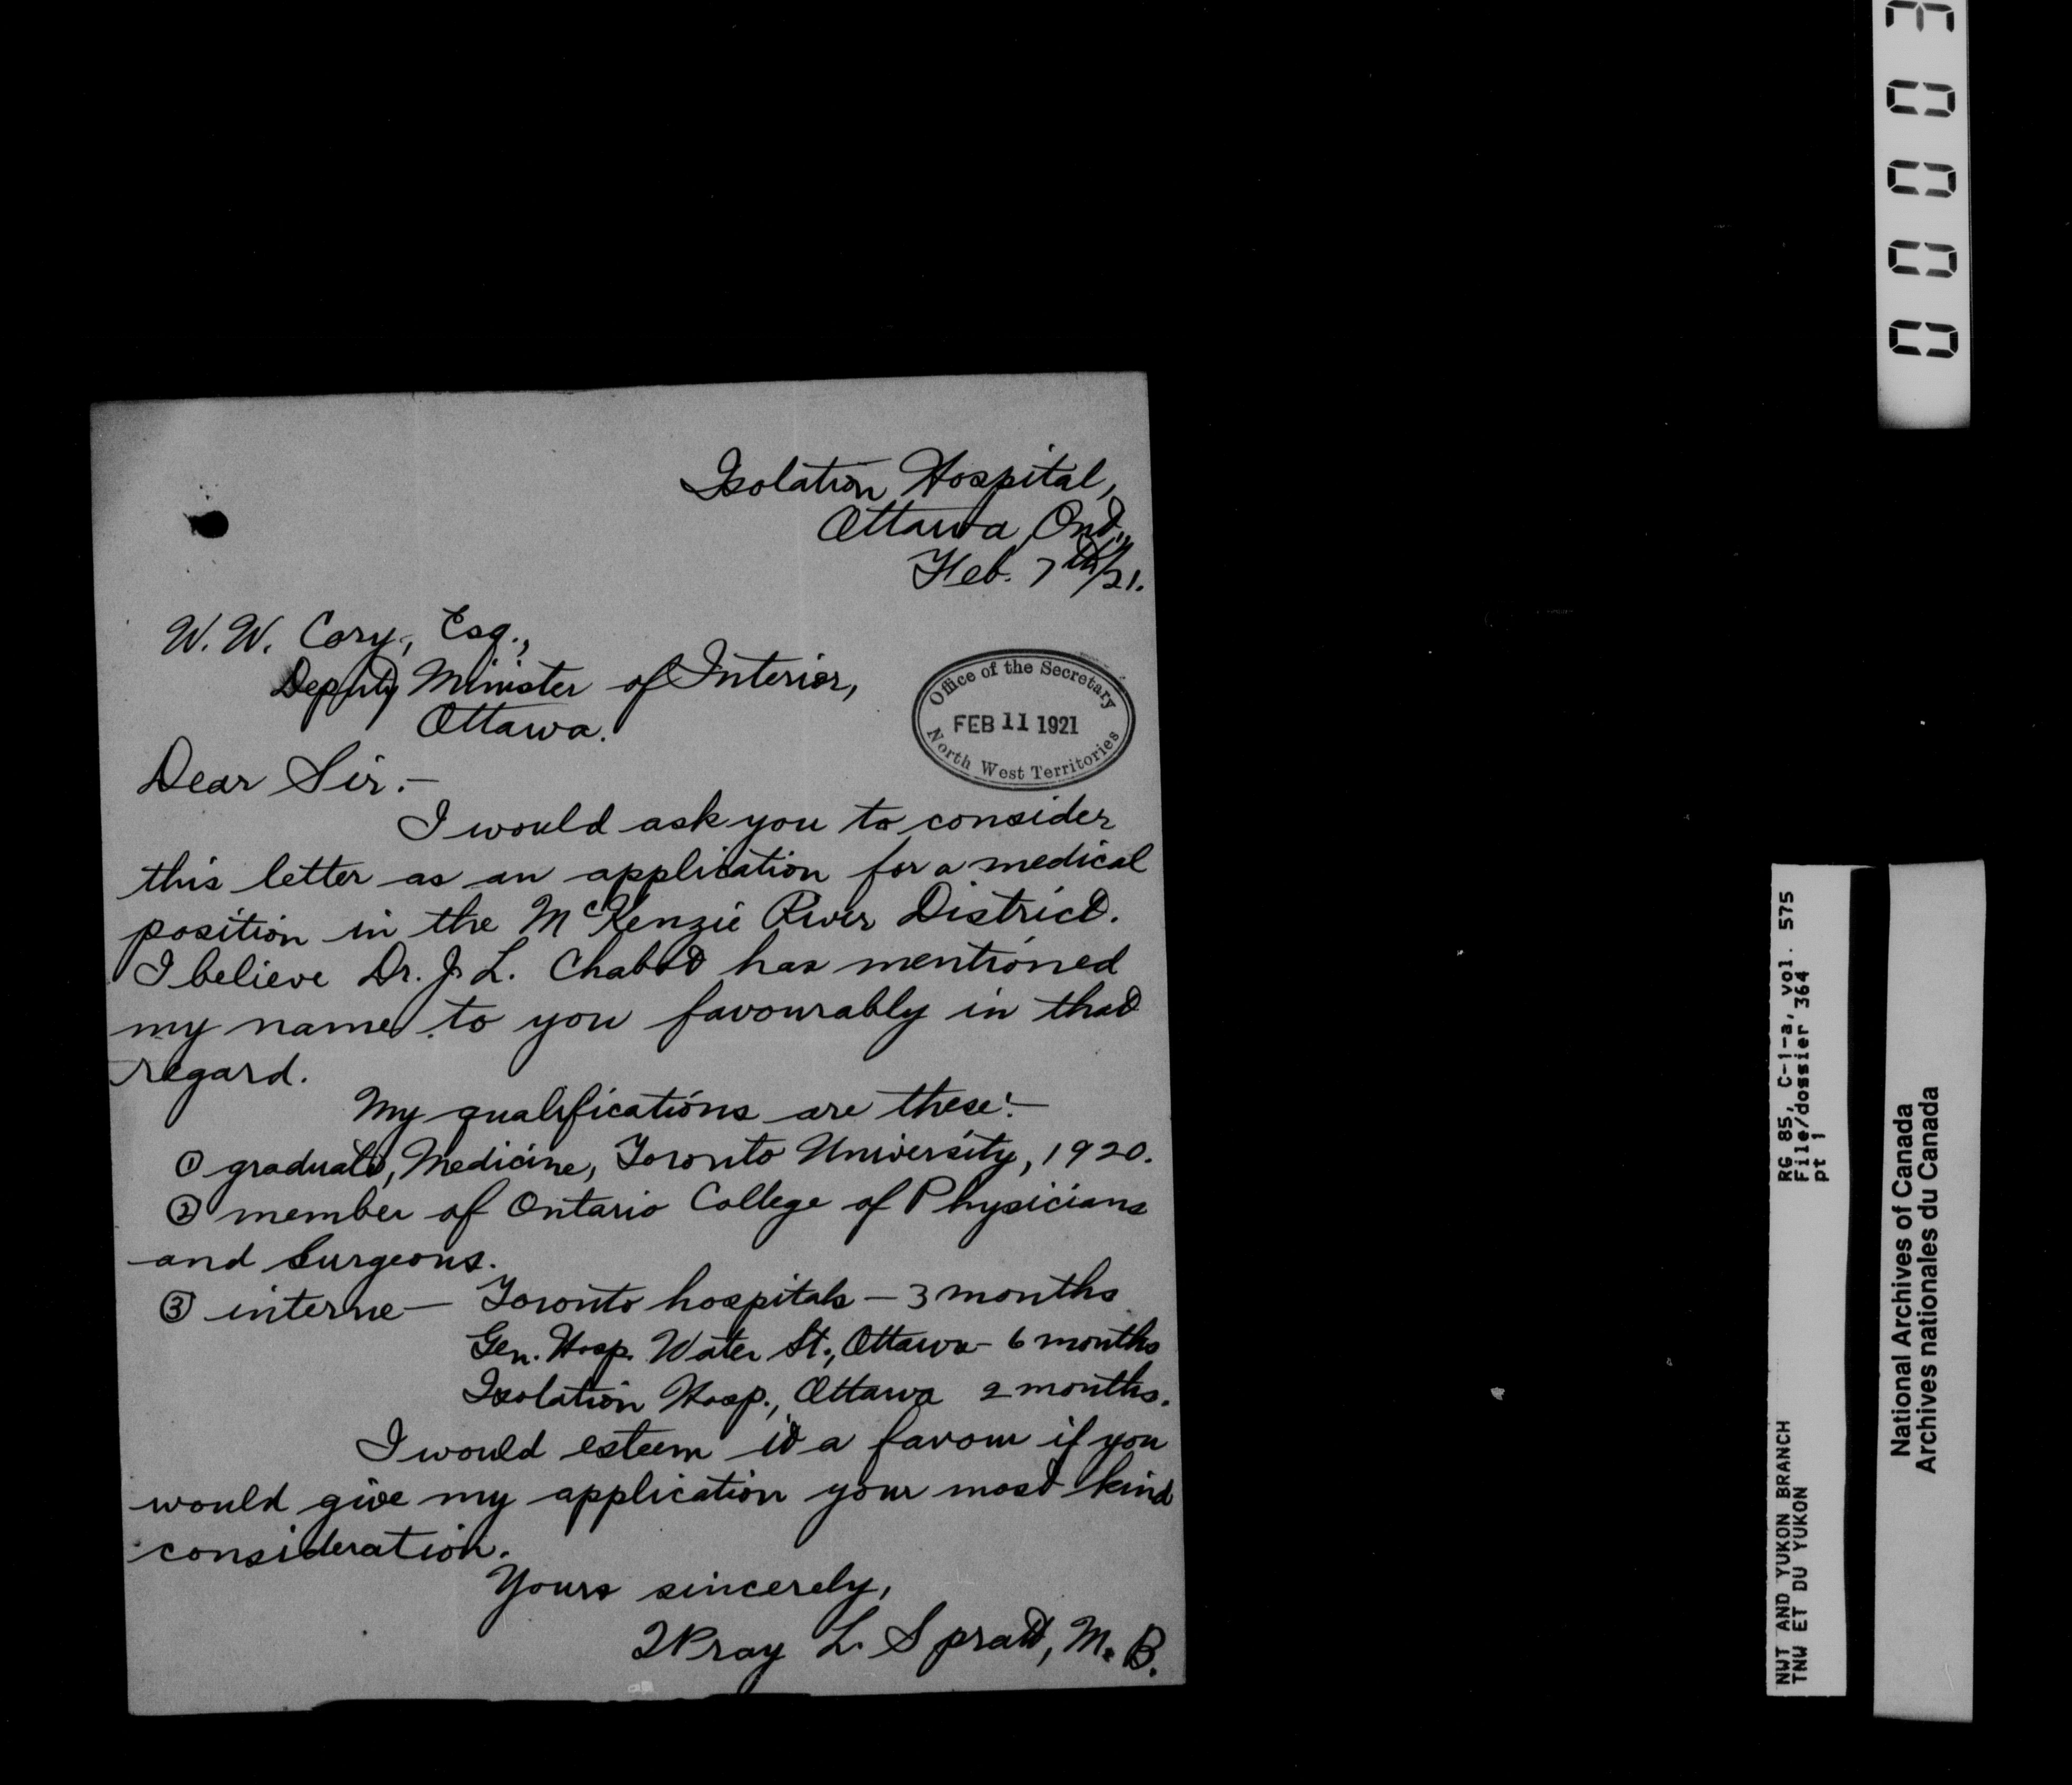 Isolation Hospital,
Ottawa, Ont.,
Feb. 7th/21.
W. W. Cory, Esq.,
Deputy Minister of Interior,
Ottawa.
Office of the Secretary
FEB 11 1921
North West Territories
Dear Sir:—
I would ask you to consider
this letter as an application for a medical
position in the McKenzie River District.
I believe Dr. J. L. Chabot has mentioned
my name to you favourably in that
regard.
My qualifications are these:—
① graduate, Medicine, Toronto University, 1920.
② member of Ontario College of Physicians
and Surgeons.
③ interne — Toronto hospitals — 3 months
Gen. Hosp. Water St., Ottawa — 6 months
Isolation Hosp., Ottawa 2 months.
I would esteem it a favour if you
would give my application your most kind
consideration.
Yours sincerely,
Wray L. Spratt, M. B.
NWT AND YUKON BRANCH
TNW ET DU YUKON
RG 85, C-1-a, vol. 575
File/dossier 364
pt 1
National Archives of Canada
Archives nationales du Canada